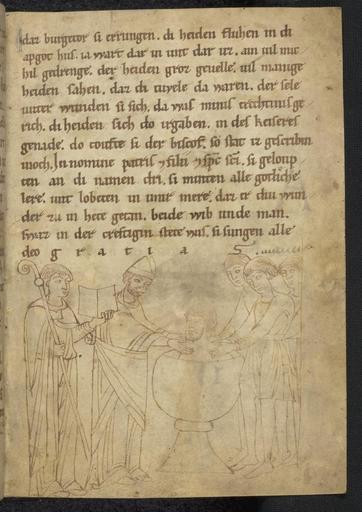 daz burgetor si errungen. di heiden fluhen in di
apgot hus. ia wart dar in unt dar uz. ain uil mic
hil gedrenge. der heiden groz geuelle. uil manige
heiden sahen. daz di tiuele da waren. der sele
unter wunden si sich. da was minis trechtinis ge
rich. di heiden sich do irgaben. in des keiseres
genade. do toufte si der biscof. so stat iz gescribin
noch. In nomine patris & filii & sps sci. si geloup
ten an di namen dri. si minten alle gotliche
lere. unt lobeten in imir mere. daz er diu wun
der zu in hete getan. beide wib unde man.
swaz in der cristigin stete was. si sungen alle
deo g r a t i a s.